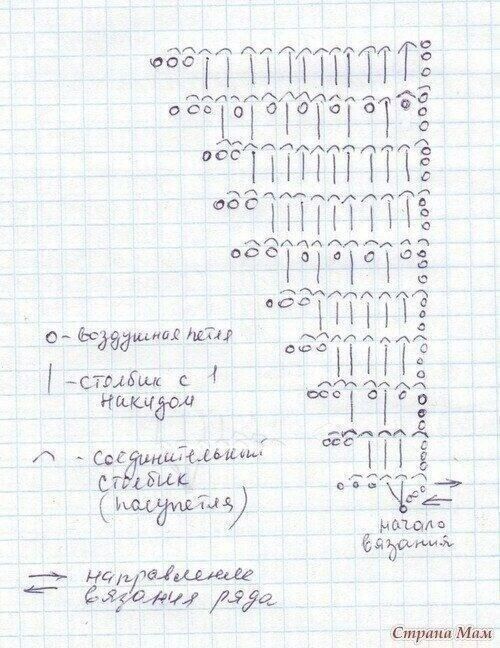 o - воздушная петля
| - столбик с 1
накидом
⌒ - соединительный
столбик
(полупетля)
начало
вязания
направление
вязания ряда
Страна Мам